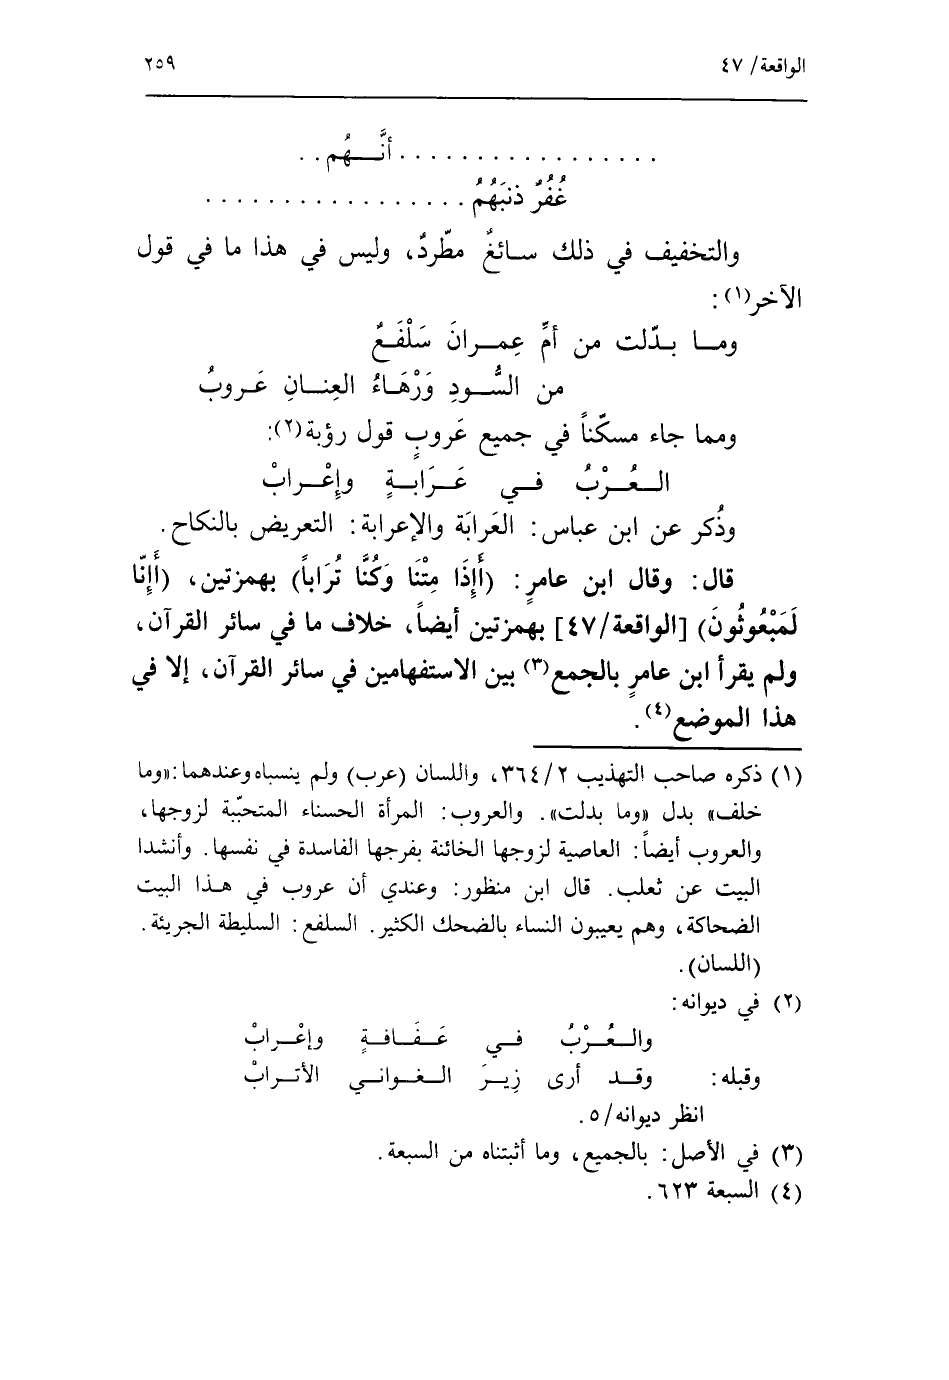 الواقعة/ ٤٧ ٢٥٩
. . . . . . . . . . . . . . . . . أنَّـــهُم . .
غُفُرٌ ذنبَهُمُ . . . . . . . . . . . . . . . . .
والتخفيف في ذلك ســائغٌ مطّردٌ، وليس في هذا ما في قول
الآخر(١) :
ومـــا بـدّلت من أمِّ عِمــرانَ سَلْفَـعٌ
من السُّــودِ وَرْهَـاءُ العِنـانِ عَـروبُ
ومما جاء مسكّناً في جميع عَروبٍ قول رؤبة(٢):
الــعُــرْبُ فــي عَــرَابــةٍ وإعْــرابْ
وذُكر عن ابن عباس: العَرابَة والإعرابة: التعريض بالنكاح.
قال: وقال ابن عامرٍ: (أَإِذَا مِتْنَا وَكُنَّا تُرَاباً) بهمزتين، (أَإِنّا
لَمَبْعُوثُونَ) [الواقعة/٤٧] بهمزتين أيضاً، خلاف ما في سائر القرآن،
ولم يقرأ ابن عامرٍ بالجمع(٣) بين الاستفهامين في سائر القرآن، إلا في
هذا الموضع(٤).
(١) ذكره صاحب التهذيب ٣٦٤/٢، واللسان (عرب) ولم ينسباه وعندهما: «وما
خلف» بدل «وما بدلت». والعروب: المرأة الحسناء المتحبّبة لزوجها،
والعروب أيضاً: العاصية لزوجها الخائنة بفرجها الفاسدة في نفسها. وأنشدا
البيت عن ثعلب. قال ابن منظور: وعندي أن عروب في هـذا البيت
الضحاكة، وهم يعيبون النساء بالضحك الكثير. السلفع: السليطة الجريئة.
(اللسان).
(٢) في ديوانه:
والــعُــرْبُ فــي عَــفَــافــةٍ وإعْــرابْ
وقبله: وقــد أرى زِيــرَ الــغــوانــي الأتــرابْ
انظر ديوانه/٥.
(٣) في الأصل: بالجميع، وما أثبتناه من السبعة.
(٤) السبعة ٦٢٣.